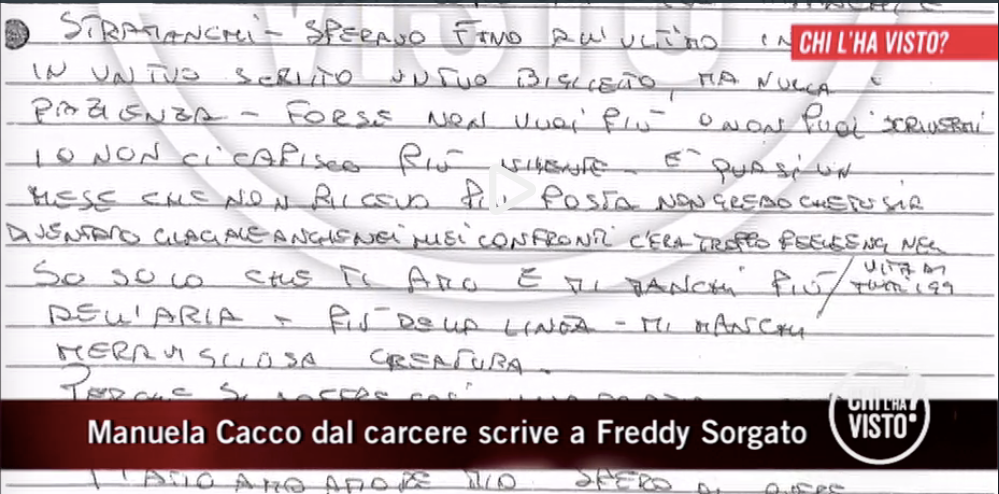 STRAMANCHI - SPERAVO FINO ALL'ULTIMO IN
CHI L'HA VISTO?
IN UN TUO SCRITO UN TUO BIGLIETO, MA NULLA
PAZIENZA - FORSE NON VUOI PIÙ O NON PUOI SCRIVERMI
IO NON CI CAPISCO PIÙ NIENTE - È QUASI UN
MESE CHE NON RICEVO PIÙ POSTA NON CREDO CHE TU SIA
DIVENTATO GLACIALE ANCHE NEI MIEI CONFRONTI C'ERA TROPPO FEELEENG NELL
SO SOLO CHE TI AMO E MI MANCHI PIÙ
VITA DI
TUTTI I GG
DELL'ARIA - PIÙ DELLA - MI MANCHI
MERAVIGLIOSA CREATURA.
PERCHÈ
Manuela Cacco dal carcere scrive a Freddy Sorgato
CHI L'HA
VISTO?
AMO AMORE MIO SPERO DI